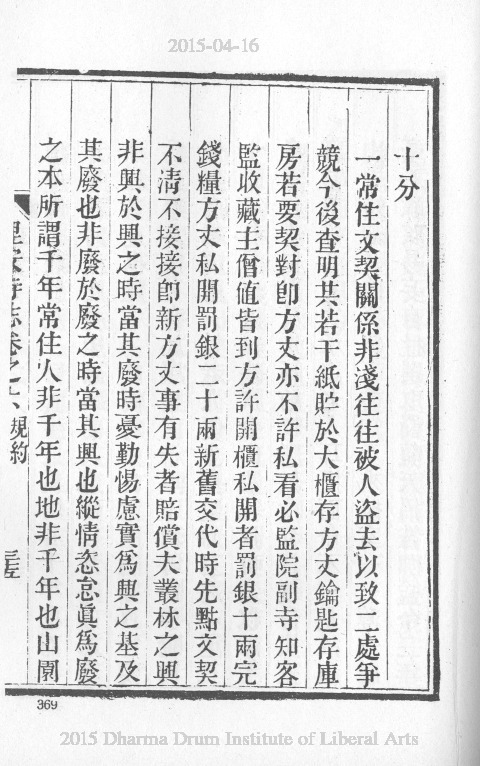 2015-04-16
十分
一常住文契關係非淺往往被人盜去以致二處爭
競今後查明共若干紙貯於大櫃存方丈鑰匙存庫
房若要契對卽方丈亦不許私看必監院副寺知客
監收藏主僧值皆到方許開櫃私開者罰銀十兩完
錢糧方丈私開罰銀二十兩新舊交代時先點文契
不清不接接卽新方丈事有失者賠償夫叢林之興
非興於興之時當其廢時憂勤惕慮實爲興之基及
其廢也非廢於廢之時當其興也縱情恣怠眞爲廢
之本所謂千年常住人非千年也地非千年也山園
寺志卷之六 規約
369
2015 Dharma Drum Institute of Liberal Arts